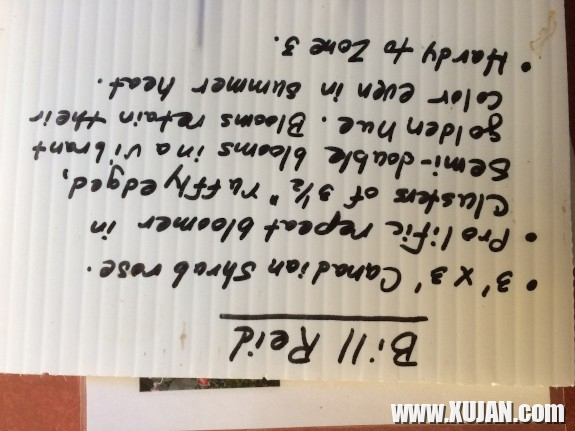 Bill Reid
• 3' x 3' Canadian shrub rose.
• Prolific repeat bloomer in
clusters of 3½" ruffly edged,
semi-double blooms in a vibrant
golden hue. Blooms retain their
color even in summer heat.
• Hardy to Zone 3.
www.XUJAN.com